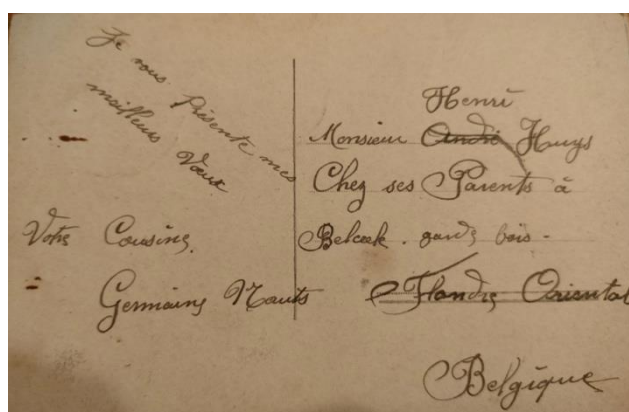 Je vous Présente mes
meilleurs Vœux
Votre Cousine
Germaine
Henri
Monsieur André Huys
Chez ses Parents à
garde bois -
Flandre Oriental
Belgique